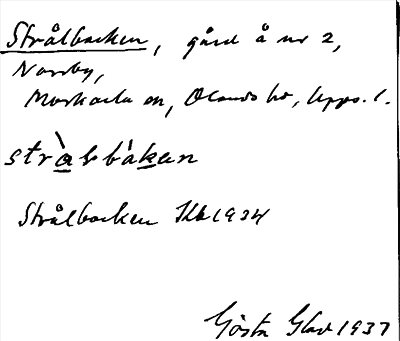 Strålbacken, gård å nr 2,
Norrby,
Morkarla sn, Olands hd, Upps. l.
stràlbàkan
Strålbacken 1934
Gösta 1937